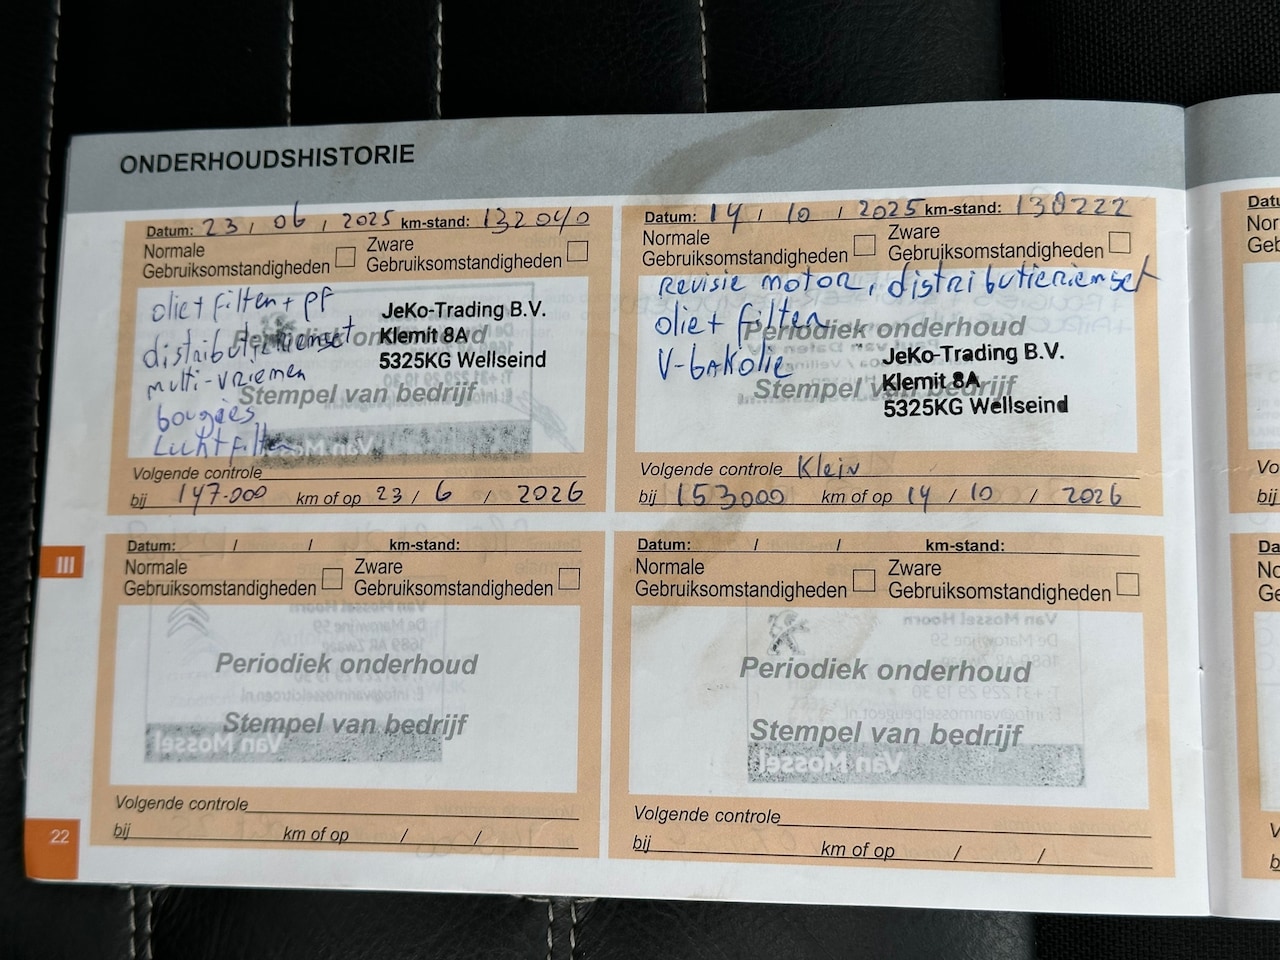 ONDERHOUDSHISTORIE
Datum: 23 / 06 / 2025 km-stand: 132040
Normale Gebruiksomstandigheden
Zware Gebruiksomstandigheden
olie + filter + pf
distributieriemset
multi-vriemen
bougies
Luchtfilter
Periodiek onderhoud
Stempel van bedrijf
JeKo-Trading B.V.
Klemit 8A
5325KG Wellseind
Volgende controle
bij 147.000 km of op 23 / 6 / 2026
Datum: 14 / 10 / 2025 km-stand: 138222
Normale Gebruiksomstandigheden
Zware Gebruiksomstandigheden
revisie motor, distributieriemset
olie + filter
V-bakolie
Periodiek onderhoud
Stempel van bedrijf
JeKo-Trading B.V.
Klemit 8A
5325KG Wellseind
Volgende controle Klein
bij 153000 km of op 14 / 10 / 2026
III
Datum: / / km-stand:
Normale Gebruiksomstandigheden
Zware Gebruiksomstandigheden
Periodiek onderhoud
Stempel van bedrijf
Van Mossel
Volgende controle
bij km of op / /
Datum: / / km-stand:
Normale Gebruiksomstandigheden
Zware Gebruiksomstandigheden
Periodiek onderhoud
Stempel van bedrijf
Van Mossel
Volgende controle
bij km of op / /
22